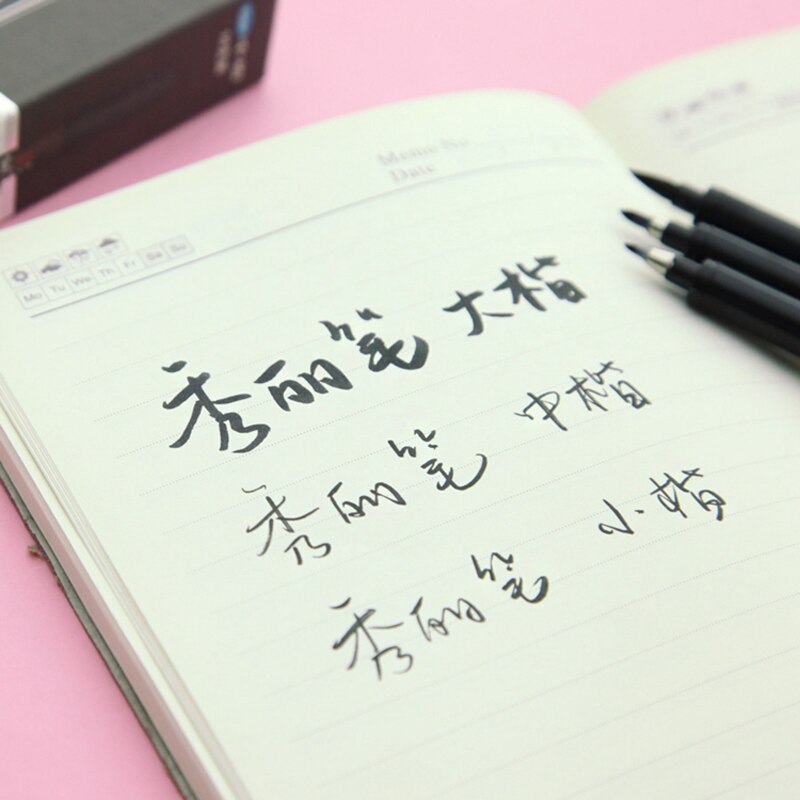 Memo No.
Date
Mo Tu We Th Fr Sa Su
秀丽笔 大楷
秀丽笔 中楷
秀丽笔 小楷